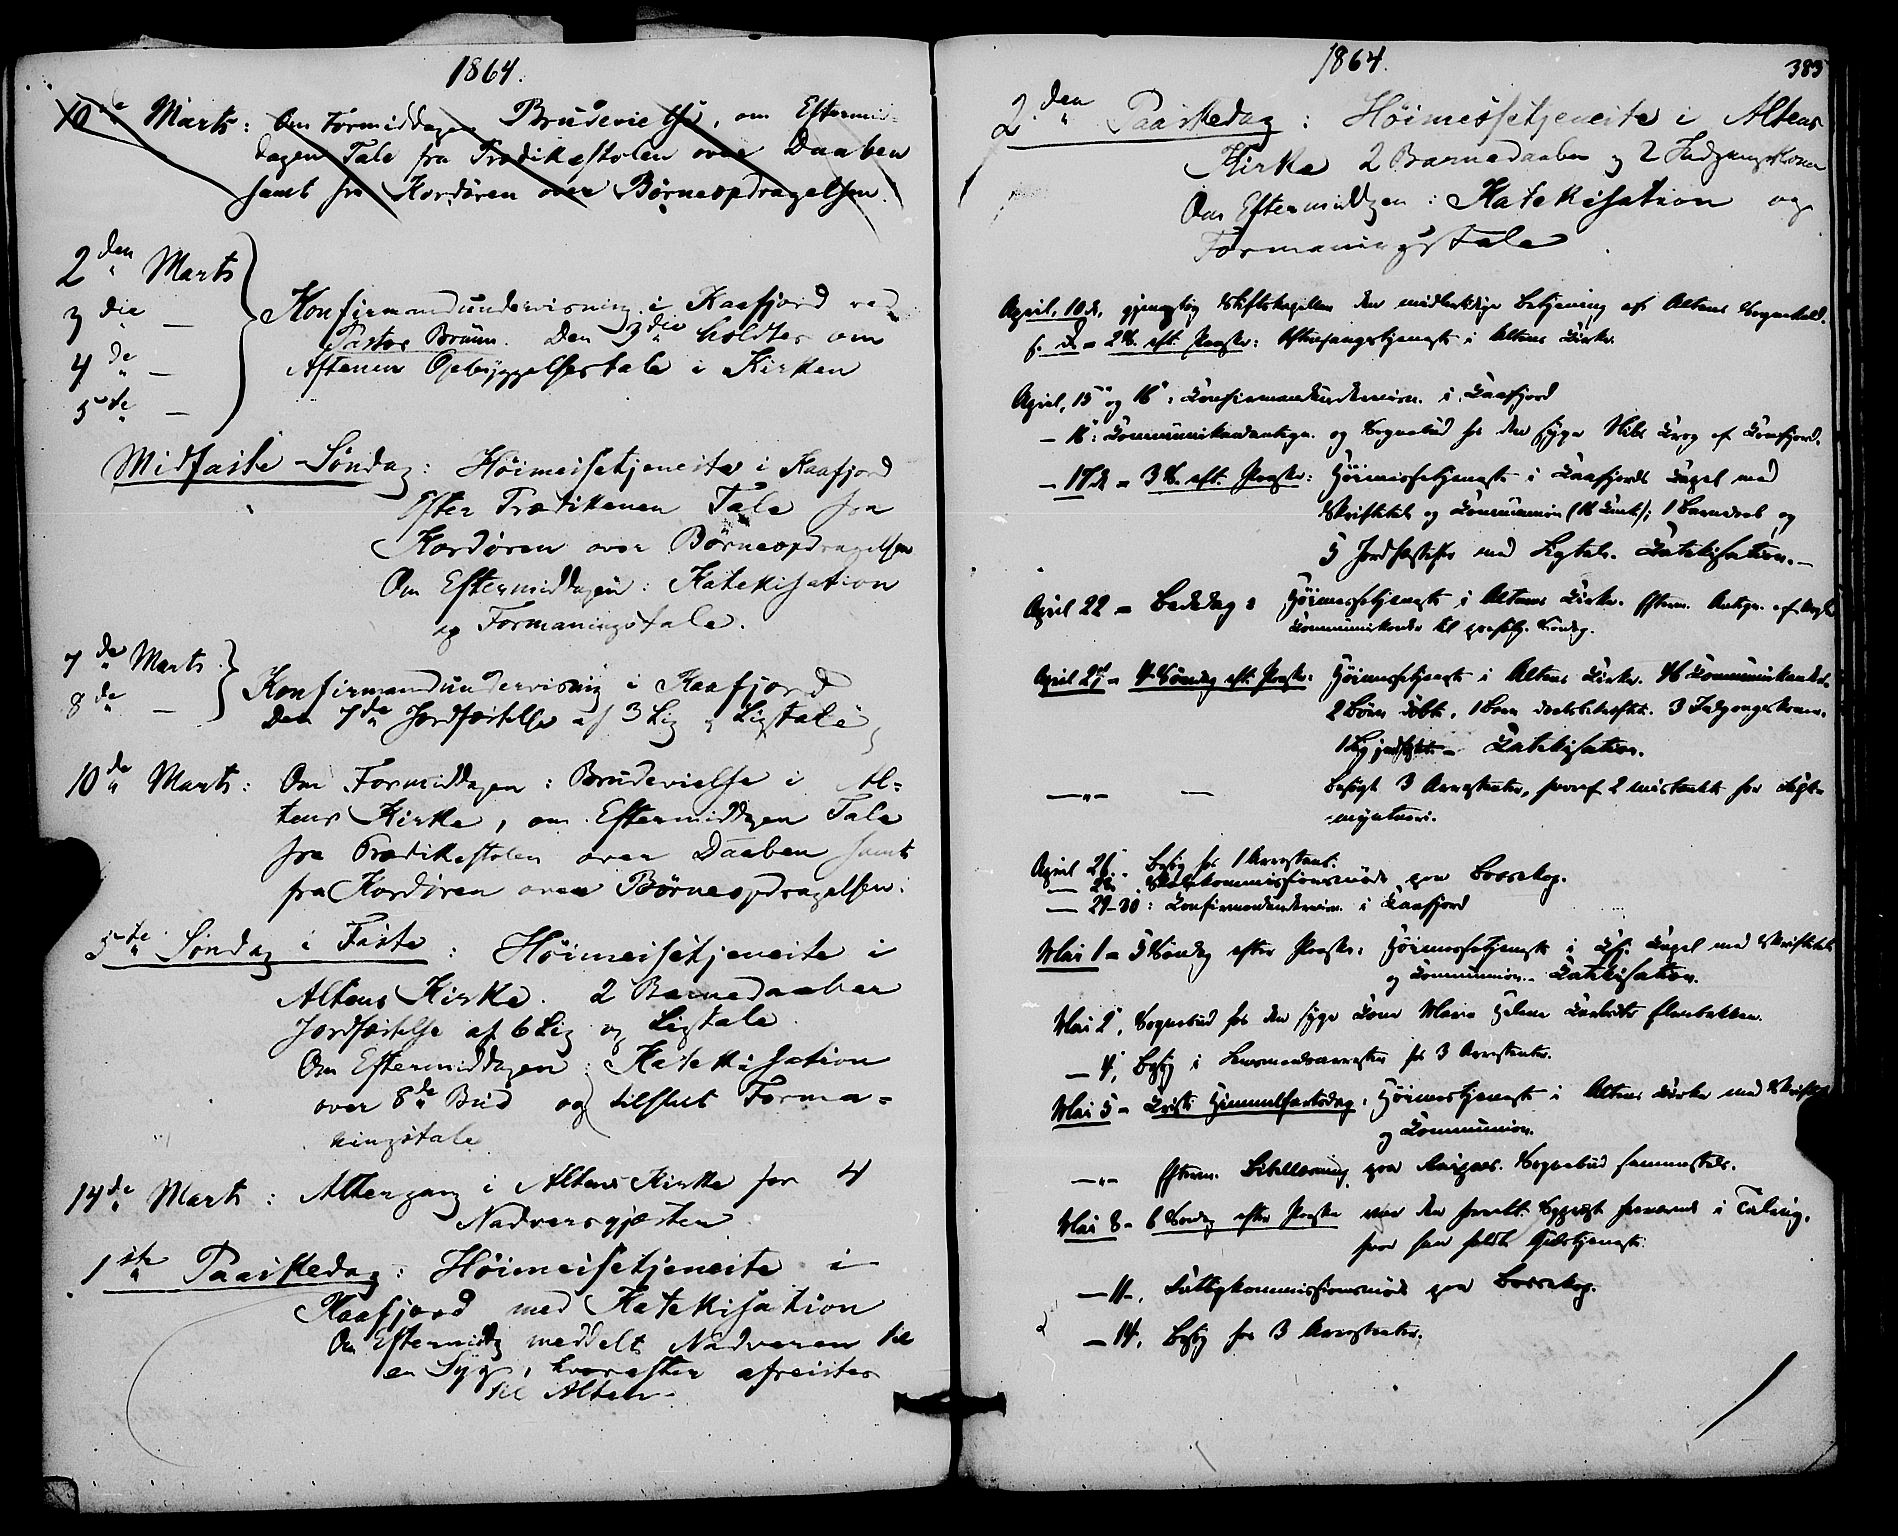 1864.
10de Marts: Om Formiddagen Brudevielse, om Eftermid-
dagen Tale fra Prædikestolen over Daaben
samt fra Kordøren over Børneopdragelsen.
2den Marts
3die —
4de —
5te —
Konfirmandundervisning i Kaafjord ved
Pastor Bruun. Den 3die holdtes om
Aftenen Opbyggelsestale i Kirken
Midfaste-Søndag: Høimessetjeneste i Kaafjord
Efter Prædikenen Tale fra
Kordøren over Børneopdragelsen
Om Eftermiddagen: Katekisation
og Formaningstale.
7de Marts
8de —
Konfirmandundervisning i Kaafjord
Den 7de Jordfæstelse af 3 Lig & Ligtale
10de Marts: Om Formiddagen: Brudevielse i Al-
tens Kirke, om Eftermiddagen Tale
fra Prædikestolen over Daaben samt
fra Kordøren over Børneopdragelsen.
5te Søndag i Faste: Høimessetjeneste i
Altens Kirke. 2 Barnedaaber
Jordfæstelse af 6 Lig og Ligtale.
Om Eftermiddagen: Katekisation
over 8de Bud og tilslut Forma-
ningstale
14de Marts: Altergang i Altens Kirke for 4
Nadversgjæster.
1ste Paaskedag: Høimessetjeneste i
Kaafjord med Katekisation
Om Eftermidg meddelt Nadveren til
en Syg, hvorefter afreistes
til Alten.
1864.
385
2den Paaskedag: Høimessetjeneste i Altens
Kirke 2 Barnedaaber og 2 Indgangskoner
Om Eftermiddgen: Katekisation og
Formaningstale.
April, 10de, Stiftskapellan den midlertidige Betjening af Altens Sognekald.
2 S. eft. Paaske: Aftensangstjeneste i Altens Kirke.
April, 15 og 16: Confirmandundervisn. i Kaafjord
— 16: Communikantantegn. og Sognebud for den syge Nils Krog af Kaafjord.
— 17de = 3 S. eft. Paaske: Høimessetjeneste i Kaafjords Kapel med
Skriftetale og Communion; 1 Barnedaab og
5 Jordfæstelser med Ligtale. Katekisation.—
April 22 = Bededag: Høimessetjeneste i Altens Kirke. Efterm. Antegn. af
Communikanter til Søndag.
April 24 = 4 Søndag eft. Paaske: Høimessetjeneste i Altens Kirke. 46 Communikanter.
2 Børn døbte, 1 Barn daabsbekræftet. 3 Indgangskoner.
1 Lig jordfæstet. — Katekisation.
—„— — Besøgt 3 Arrestanter, hvoraf 2 mistænkte for Falsk-
mynteri.
April 26. Besøg hos 1 Arrestant.
— Skolekommissionsmøde paa Bossekop.
— 29-30: Confirmandundervisn. i Kaafjord
Mai 1 = 5 Søndag efter Paaske: Høimessetjeneste i Kfj. Kapel med Skriftetale
og Communion. Katekisation.
Mai 2, Sognebud for den syge Kone Maria Helene
— 4, Besøg i Lensmandsarresten hos 3 Arrestanter.
Mai 5 = Kristi Himmelfartsdag: Høimessetjeneste i Altens Kirke med Skriftet.
og Communion.
—„— Efterm. Bibellæsning paa Sognebud sammesteds.
Mai 8 = 6 Søndag efter Paaske var den i Talvig,
hvor han holdt Gudstjeneste.
— 11, Fattigkommissionsmøde paa Bossekop.
— 14, Besøg hos 3 Arrestanter.